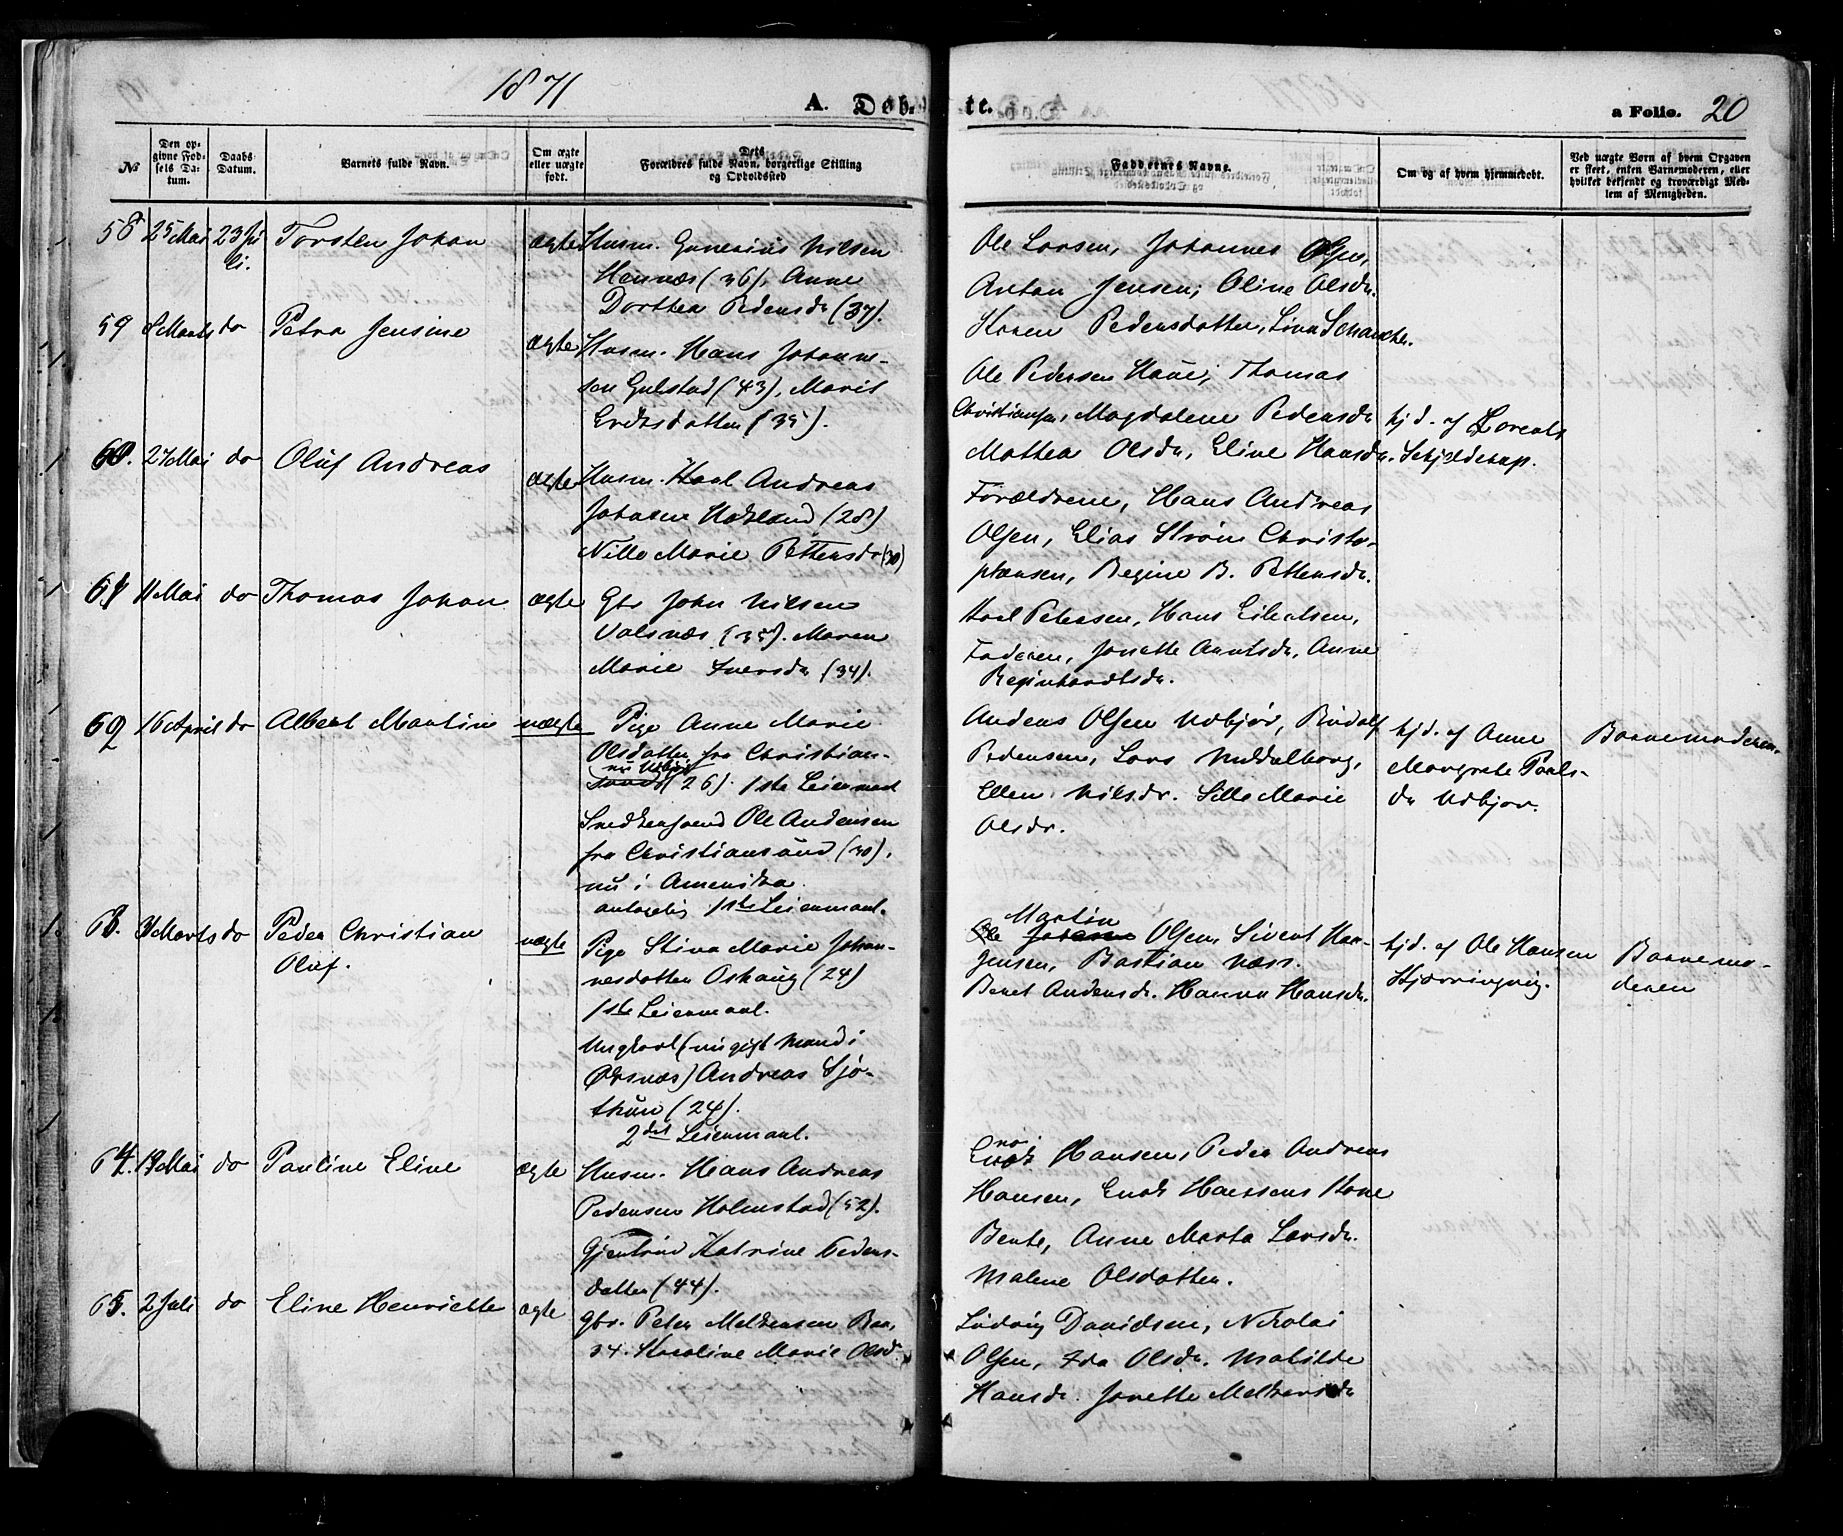 1871
A. Døb-
te.
a Folio. 20
№
Den op-
givne Fød-
sels Da-
tum.
Daabs-
Datum.
Barnets fulde Navn.
Om ægte
eller uægte
født.
Dets
Forældres fulde Navn, borgerlige Stilling
og Opholdssted
Faddernes Navne.
Om og af hvem hjemmedøbt.
Ved uægte Børn af hvem Opgaven
er skeet, enten Barnemoderen, eller
hvilket bekjendt og troværdigt Med-
lem af Menigheden.
58 25 Mai 23 Ju
li.
Torsten Johan
ægte
Husm. Generius Nilsen
Hennæs (36), Anne
Dorthea Pedersdr (37).
Ole Larsen, Johannes Olsen,
Anton Jensen, Oline Olsdr.
Karen Pedersdatter, Lina Schancke.
59 8 Marts do Petra Jensine
ægte
Husm. Hans Johanne-
sen Gulstad (43), Marit
Eriksdatter (35).
Ole Pedersen Haue, Thomas
Christiansen, Magdalene Pedersdr
Mathea Olsdr, Eline Hansdr.
hjd. af Lorents
Schjelderup.
60. 27 Mai do Oluf Andreas
ægte
Husm. Hoal Andreas
Johnsen Hokland (28)
Nille Marie Pettersdr (30)
Forældrene, Hans Andreas
Olsen, Elias Strøm Christo-
phersen, Regine B. Pettersdr.
61 11 Mai do Thomas Johan
ægte
Gbr John Nilsen
Valsnæs (35). Maren
Marie Iversdr (34).
Hoal Petersen, Hans Eilertsen,
Faderen, Jonette Arntsdr, Anne
Reginhardtsdr.
62 16 April do Albert Martin
uægte
Pige Anne Marie
Olsdatter fra Christian-
nu Udbjør
sund (26). 1ste Leiermaal
Snedkersvend Ole Andersen
fra Christiansund (30),
nu i Amerika.
antagelig 1ste Leiermaal.
Anders Olsen Udbjør, Rudolf
Pedersen, Lars Middelborg,
Ellen Nilsdr. Sille Marie
Olsdr.
hjd. af Anne
Margrete Pauls-
dr Udbjør.
Barnemoderen.
63. 9 Marts do Peder Christian
Oluf.
uægte
Pige Stina Marie Johan-
nesdatter Oshaug (24)
1ste Leiermaal.
Ungkarl (nu gift Mand i
Øksnæs) Andreas Sjø-
thun (24).
2det Leiermaal.
Martin
Ole Olsen, Sivert Han-
Jensen, Bastian Næss.
Beret Andersdr. Hanna Hansdr.
hjd. af Ole Hansen
Hjærringvig.
Barnemo-
deren
64. 19 Mai do Pauline Eline
ægte
Husm. Hans Andreas
Pedersen Holmstad (52).
Gjertrud Katrine Peders-
datter (44).
Enok Hansen, Peder Andreas
Hansen, Enok Hanssens Kone
Bente, Anne Marta Larsdr.
Malene Olsdatter.
65. 2 Juli do Eline Henriette
ægte
Gbr. Peter Melkersen Boe,
34. Karoline Marie Olsd
Ludvig Davidsen, Nikolai
Olsen, Ida Olsdr. Matilde
Hansdr. Jonette Melkersdr